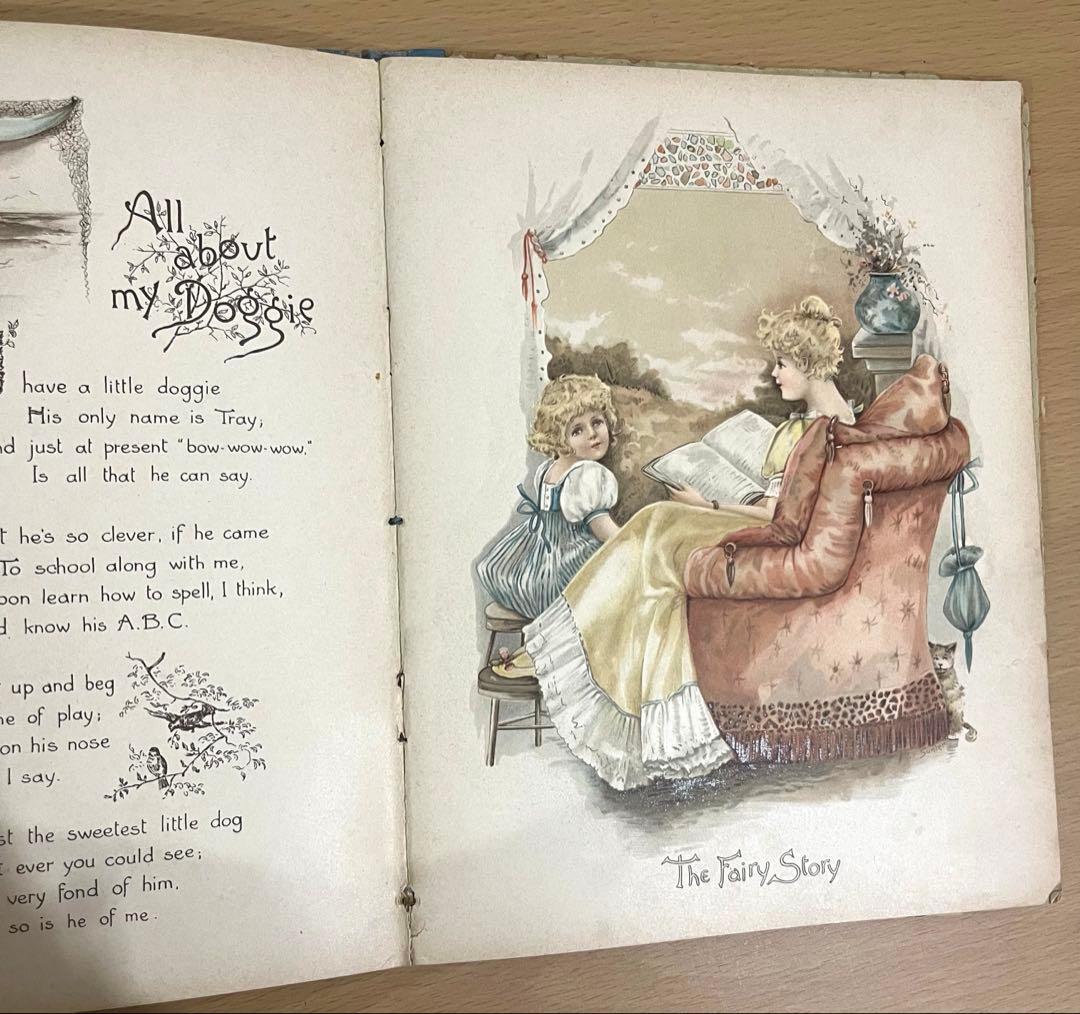 All
about
my Doggie
have a little doggie
His only name is Tray;
nd just at present "bow-wow-wow,"
Is all that he can say.
t he's so clever, if he came
To school along with me,
oon learn how to spell, I think,
d know his A.B.C.
up and beg
me of play;
on his nose
I say.
st the sweetest little dog
t ever you could see;
very fond of him,
so is he of me.
The Fairy Story